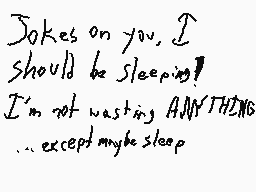 Jokes on you, I
should be sleeping!
I'm not wasting ANYTHING
...except maybe sleep